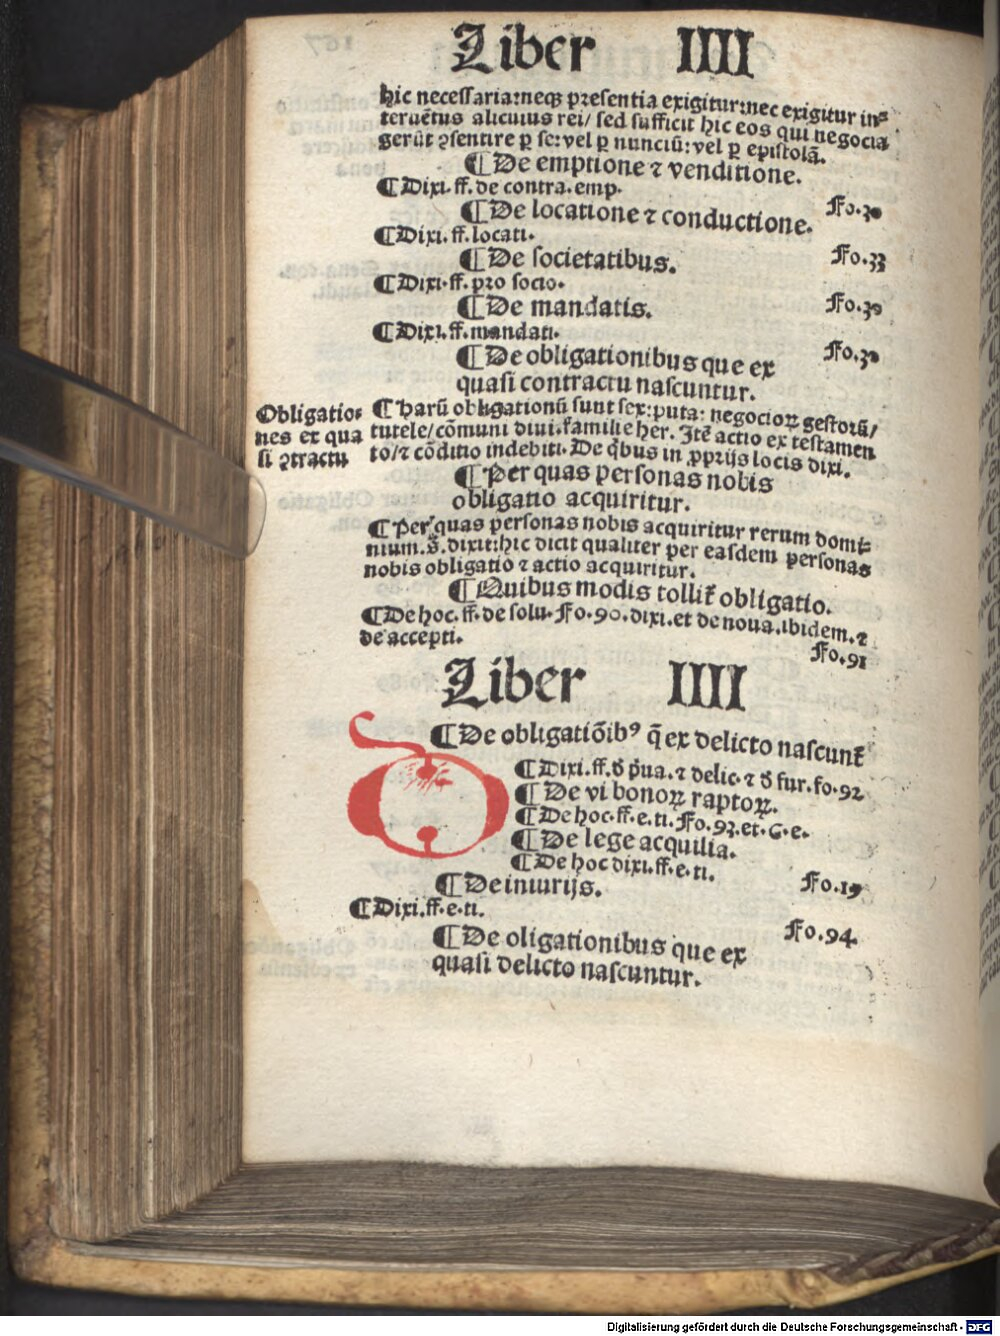 Liber IIII
hic necessaria:neqꝫ presentia exigitur:nec exigitur in⸗
teruẽtus alicuius rei/ sed sufficit hic eos qui negocia
gerũt ꝯsentire ꝑ se:vel ꝑ nunciũ:vel ꝑ epistolã.
¶De emptione ⁊ venditione.
¶Dixi.ff.de contra.emp. Fo.30
¶De locatione ⁊ conductione.
¶Dixi.ff.locati. Fo.33
¶De societatibus.
¶Dixi.ff.pro socio. Fo.30
¶De mandatis.
¶Dixi.ff.mandati. Fo.30
¶De obligationibus que ex
quasi contractu nascuntur.
Obligatio⸗
nes ex qua
si ꝯtractu
¶Harũ obligationũ sunt sex:puta: negocioꝝ gestorũ/
tutele/cõmuni diui.familie her. Itẽ actio ex testamen
to/⁊ cõditio indebiti. De qͥbus in ꝓprijs locis dixi.
¶Per quas personas nobis
obligatio acquiritur.
¶Per quas personas nobis acquiritur rerum domi⸗
nium.s̃.dixit:hic dicit qualiter per easdem personas
nobis obligatio ⁊ actio acquiritur.
¶Quibus modis tollit᷑ obligatio.
¶De hoc.ff.de solu.Fo.90.dixi.et de noua.ibidem.⁊
de accepti. Fo.91
Liber IIII
¶De obligatiõibꝰ q̃ ex delicto nascunt᷑
¶Dixi.ff.d̃ p̃ua.⁊ delic.⁊ d̃ fur.fo.92
¶De vi bonoꝝ raptoꝝ.
¶De hoc.ff.e.ti.Fo.93.et.C.e.
¶De lege acquilia.
¶De hoc dixi.ff.e.ti. Fo.19
¶De iniurijs.
¶Dixi.ff.e.ti. Fo.94
¶De oligationibus que ex
quasi delicto nascuntur.
Digitalisierung gefördert durch die Deutsche Forschungsgemeinschaft - DFG